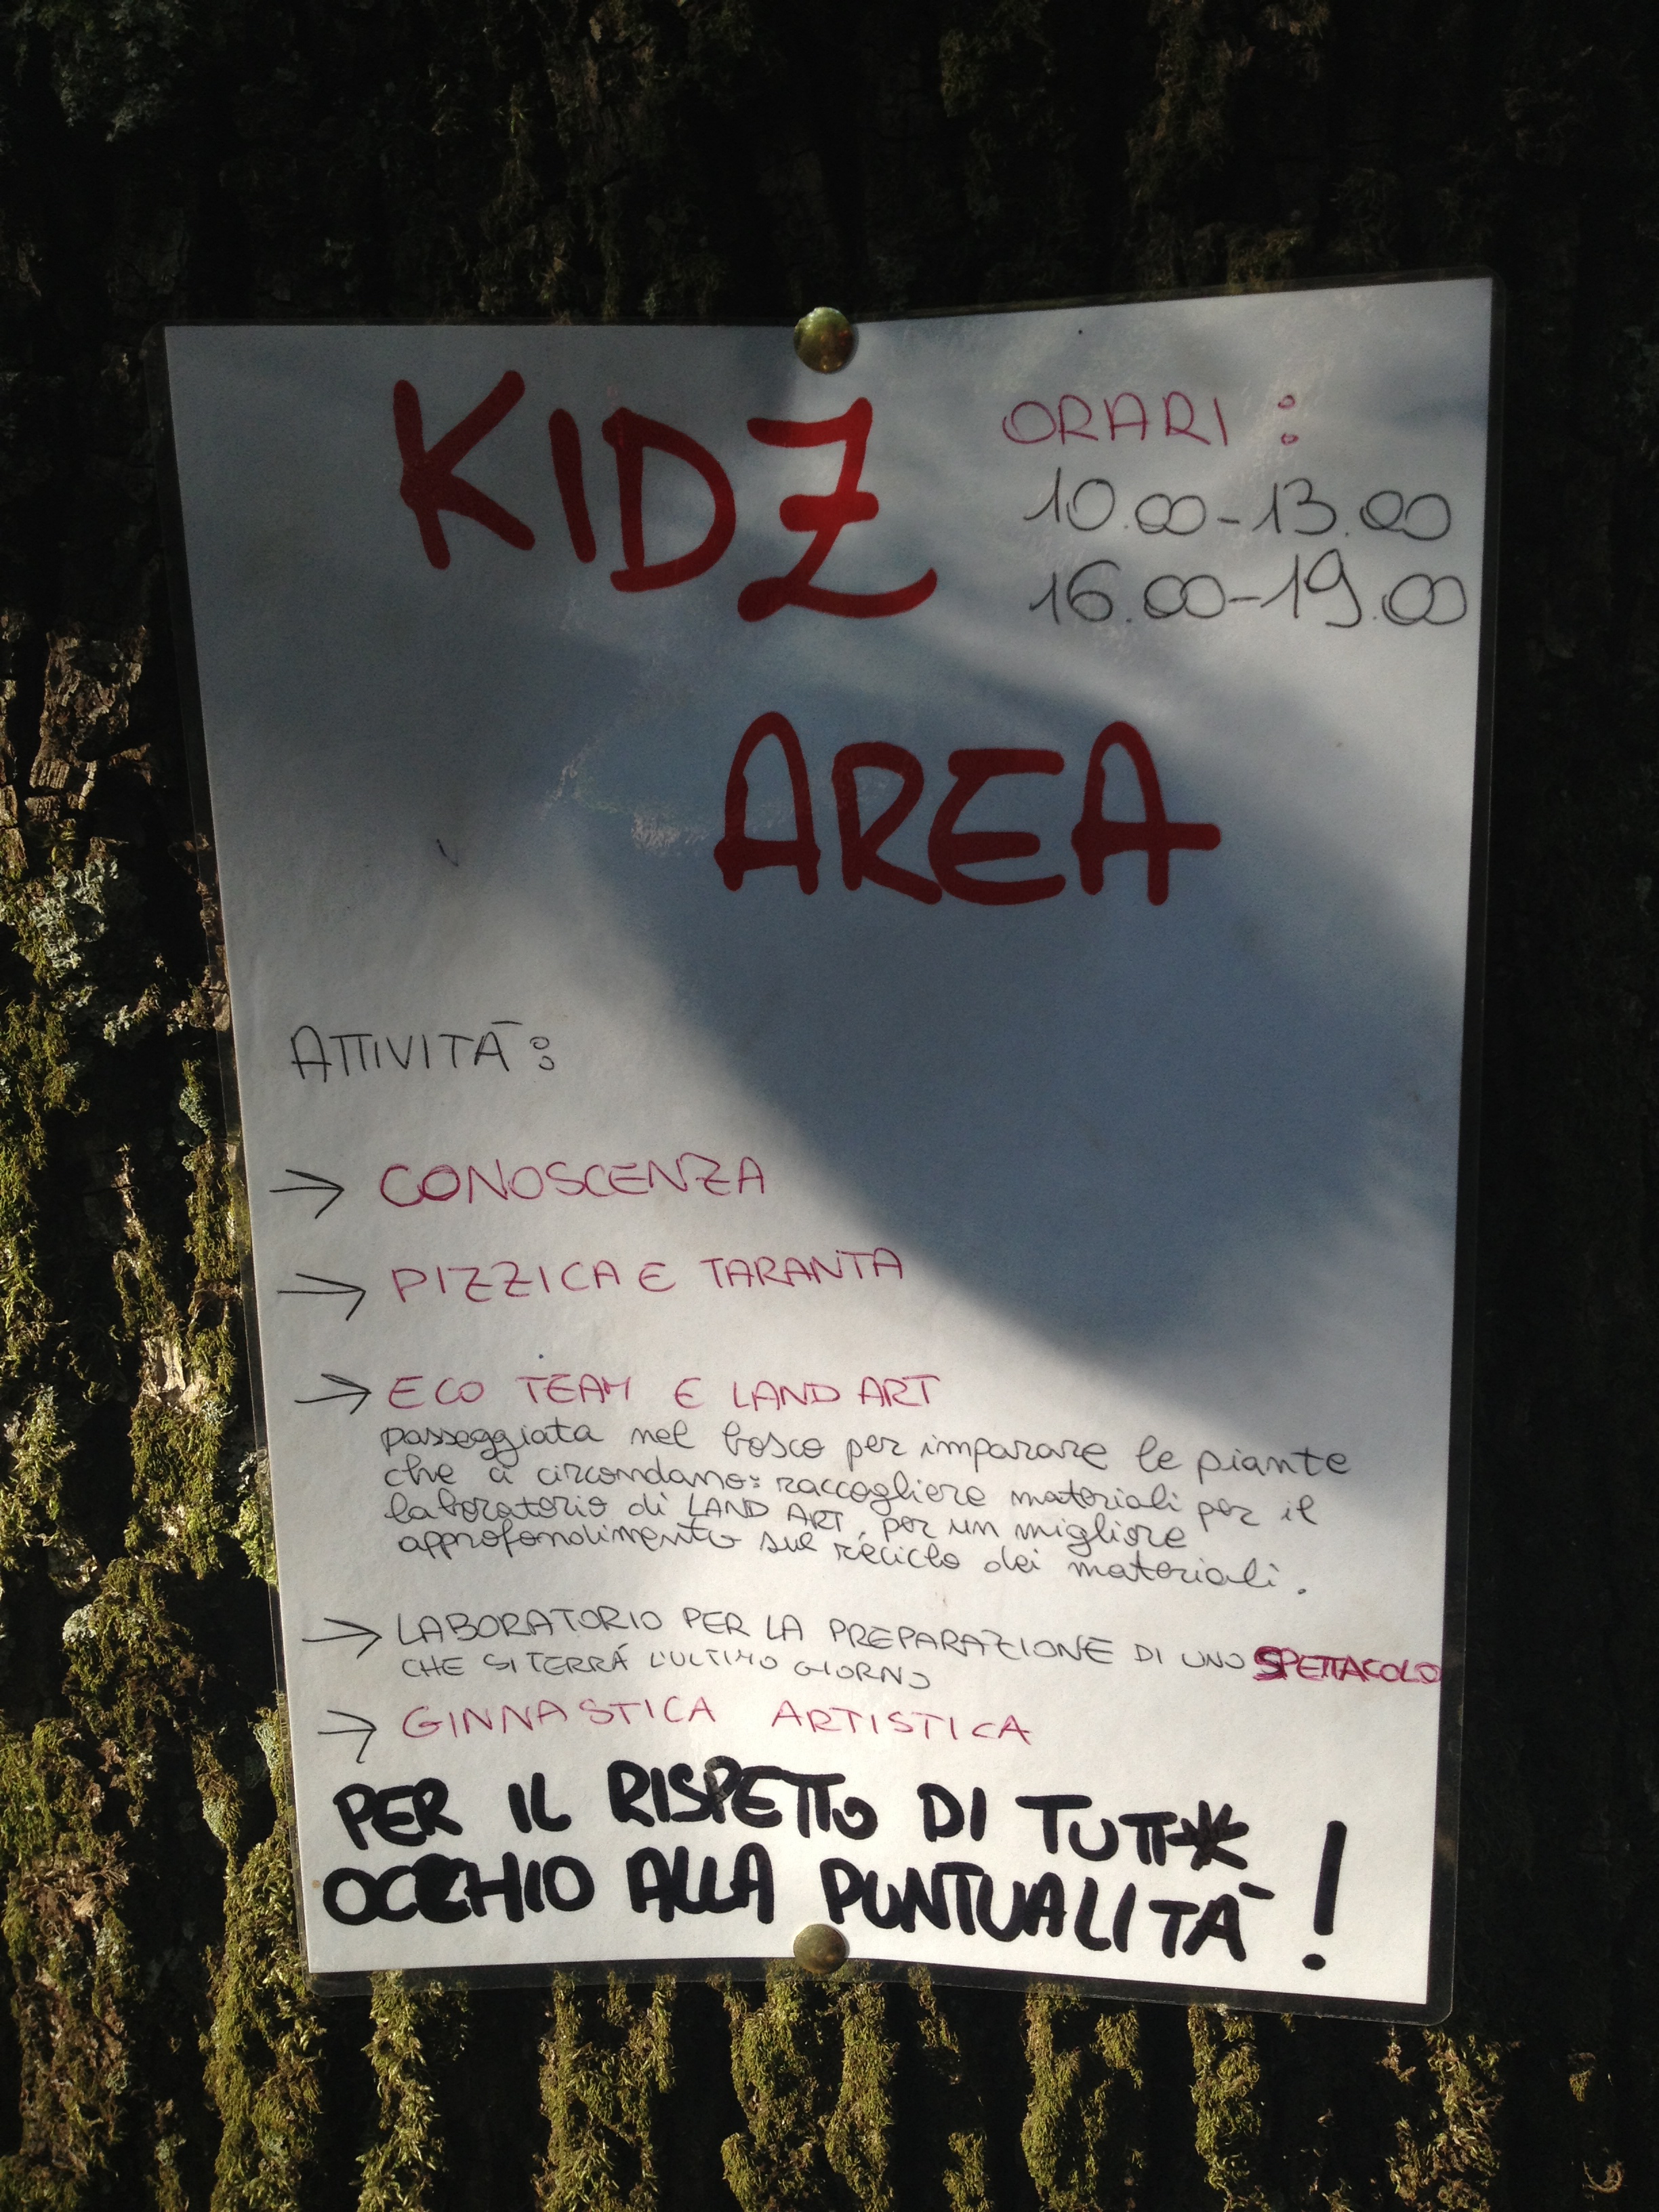 KIDZ
ORARI:
10.00-13.00
16.00-19.00
AREA
ATTIVITÀ:
→ CONOSCENZA
→ PIZZICA E TARANTA
→ ECO TEAM E LAND ART
passeggiata nel bosco per imparare le piante
che ci circondano: raccogliere materiali per il
laboratorio di LAND ART, per un migliore
approfondimento sul reciclo dei materiali.
→ LABORATORIO PER LA PREPARAZIONE DI UNO SPETTACOLO
CHE SI TERRÁ L'ULTIMO GIORNO
→ GINNASTICA ARTISTICA
PER IL RISPETTO DI TUTT*
OCCHIO ALLA PUNTUALITÀ!